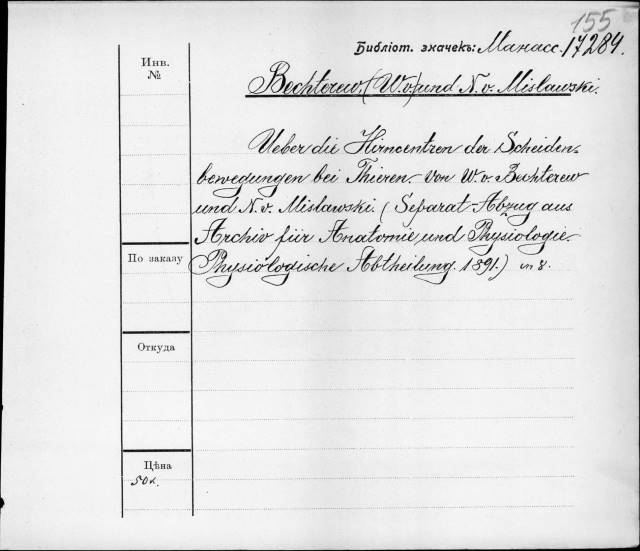 155
Библіот. значекъ: Манасс. 17284.
Инв.
№
Bechterew, (W. v.) und N. v. Mislawski.
Ueber die Hirncentren der Scheiden-
bewegungen bei Thieren. von W. v. Bechterew
und N. v. Mislawski. (Separat-Abzug aus
Archiv für Anatomie und Physiologie.
Physiologische Abtheilung. 1891.) in 8.
По заказу
Откуда
Цѣна
50к.